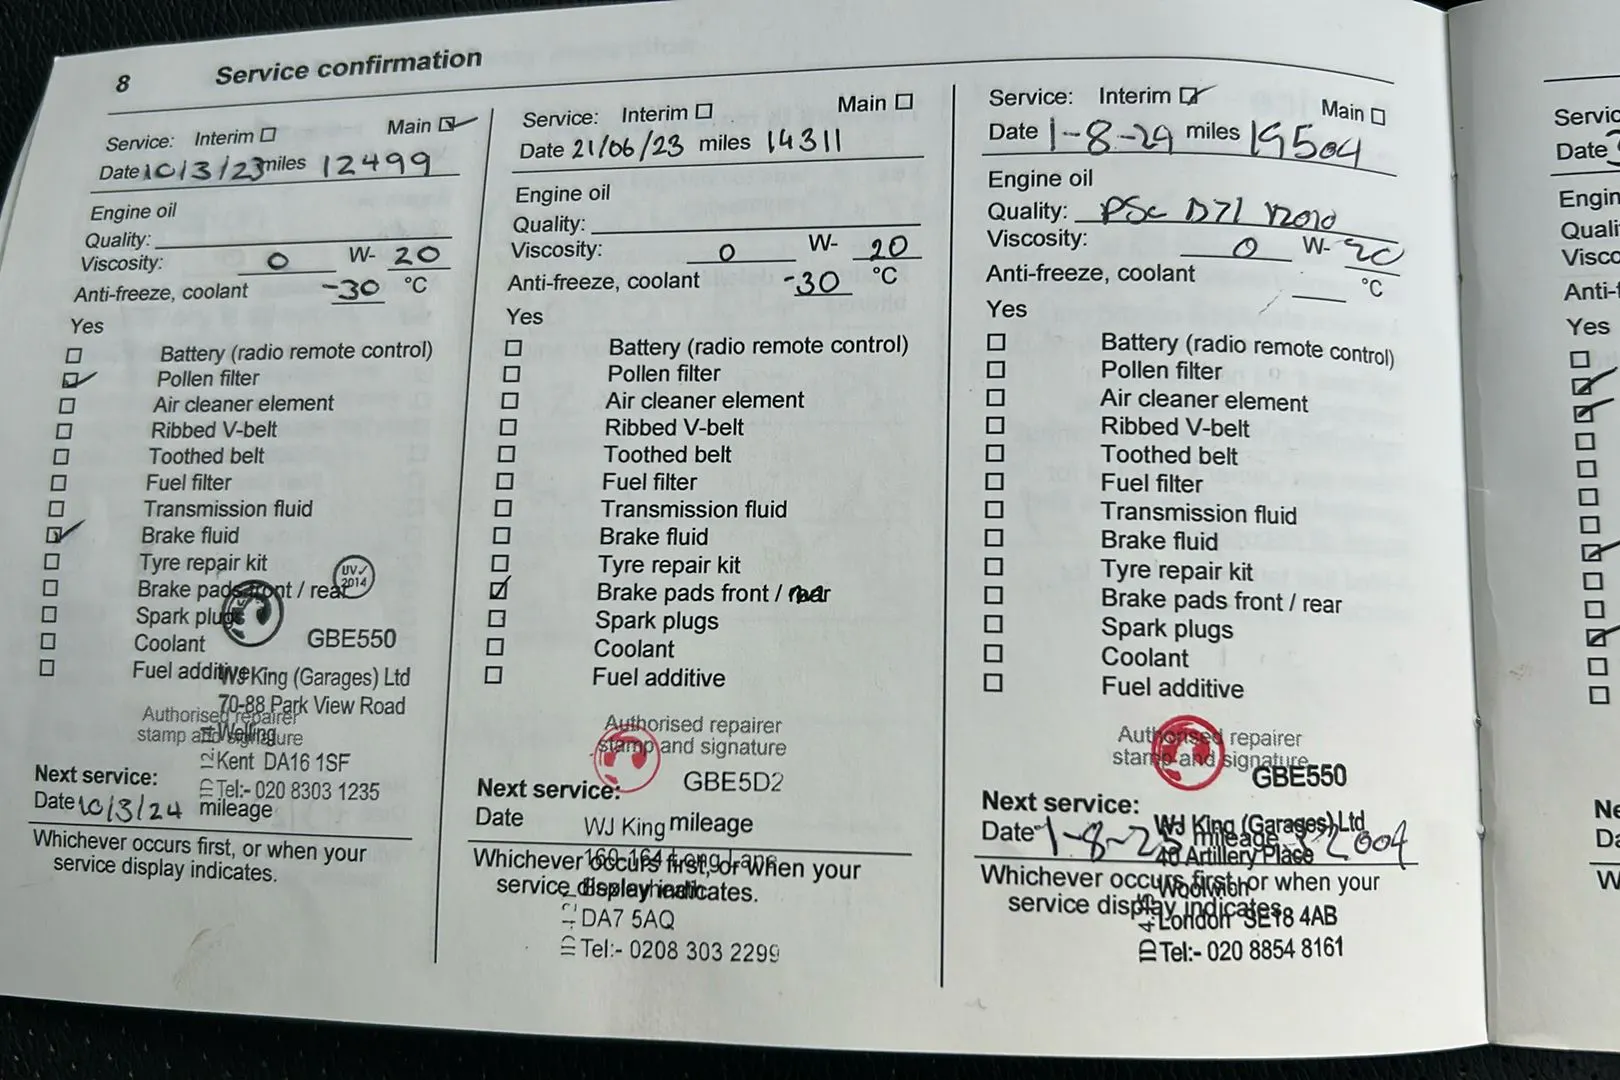 8 Service confirmation
Service: Interim Main
Date 10/3/23 miles 12499
Engine oil
Quality:
Viscosity: 0 W- 20
Anti-freeze, coolant -30 °C
Yes
Battery (radio remote control)
Pollen filter
Air cleaner element
Ribbed V-belt
Toothed belt
Fuel filter
Transmission fluid
Brake fluid
Tyre repair kit
UV✓
2014
Brake pads front / rear
Spark plugs
Coolant
GBE550
Fuel additive
WJ King (Garages) Ltd
70-88 Park View Road
Authorised repairer
stamp and signature
Welling
Kent DA16 1SF
Tel:- 020 8303 1235
Next service:
Date 10/3/24 mileage
Whichever occurs first, or when your
service display indicates.
Service: Interim Main
Date 21/06/23 miles 14311
Engine oil
Quality:
Viscosity: 0 W- 20
Anti-freeze, coolant -30 °C
Yes
Battery (radio remote control)
Pollen filter
Air cleaner element
Ribbed V-belt
Toothed belt
Fuel filter
Transmission fluid
Brake fluid
Tyre repair kit
Brake pads front / rear
Spark plugs
Coolant
Fuel additive
Authorised repairer
stamp and signature
GBE5D2
Next service:
Date mileage
WJ King
160-164 Long Lane
Whichever occurs first, or when your
service display indicates.
Bexleyheath
DA7 5AQ
Tel:- 0208 303 2299
Service: Interim Main
Date 1-8-24 miles 19504
Engine oil
Quality: PSC B71 2010
Viscosity: 0 W- 20
Anti-freeze, coolant °C
Yes
Battery (radio remote control)
Pollen filter
Air cleaner element
Ribbed V-belt
Toothed belt
Fuel filter
Transmission fluid
Brake fluid
Tyre repair kit
Brake pads front / rear
Spark plugs
Coolant
Fuel additive
Authorised repairer
stamp and signature
GBE550
Next service:
WJ King (Garages) Ltd
Date 1-8-25 mileage
40 Artillery Place
Whichever occurs first, or when your
Woolwich
service display indicates.
London SE18 4AB
Tel:- 020 8854 8161
Date
Yes